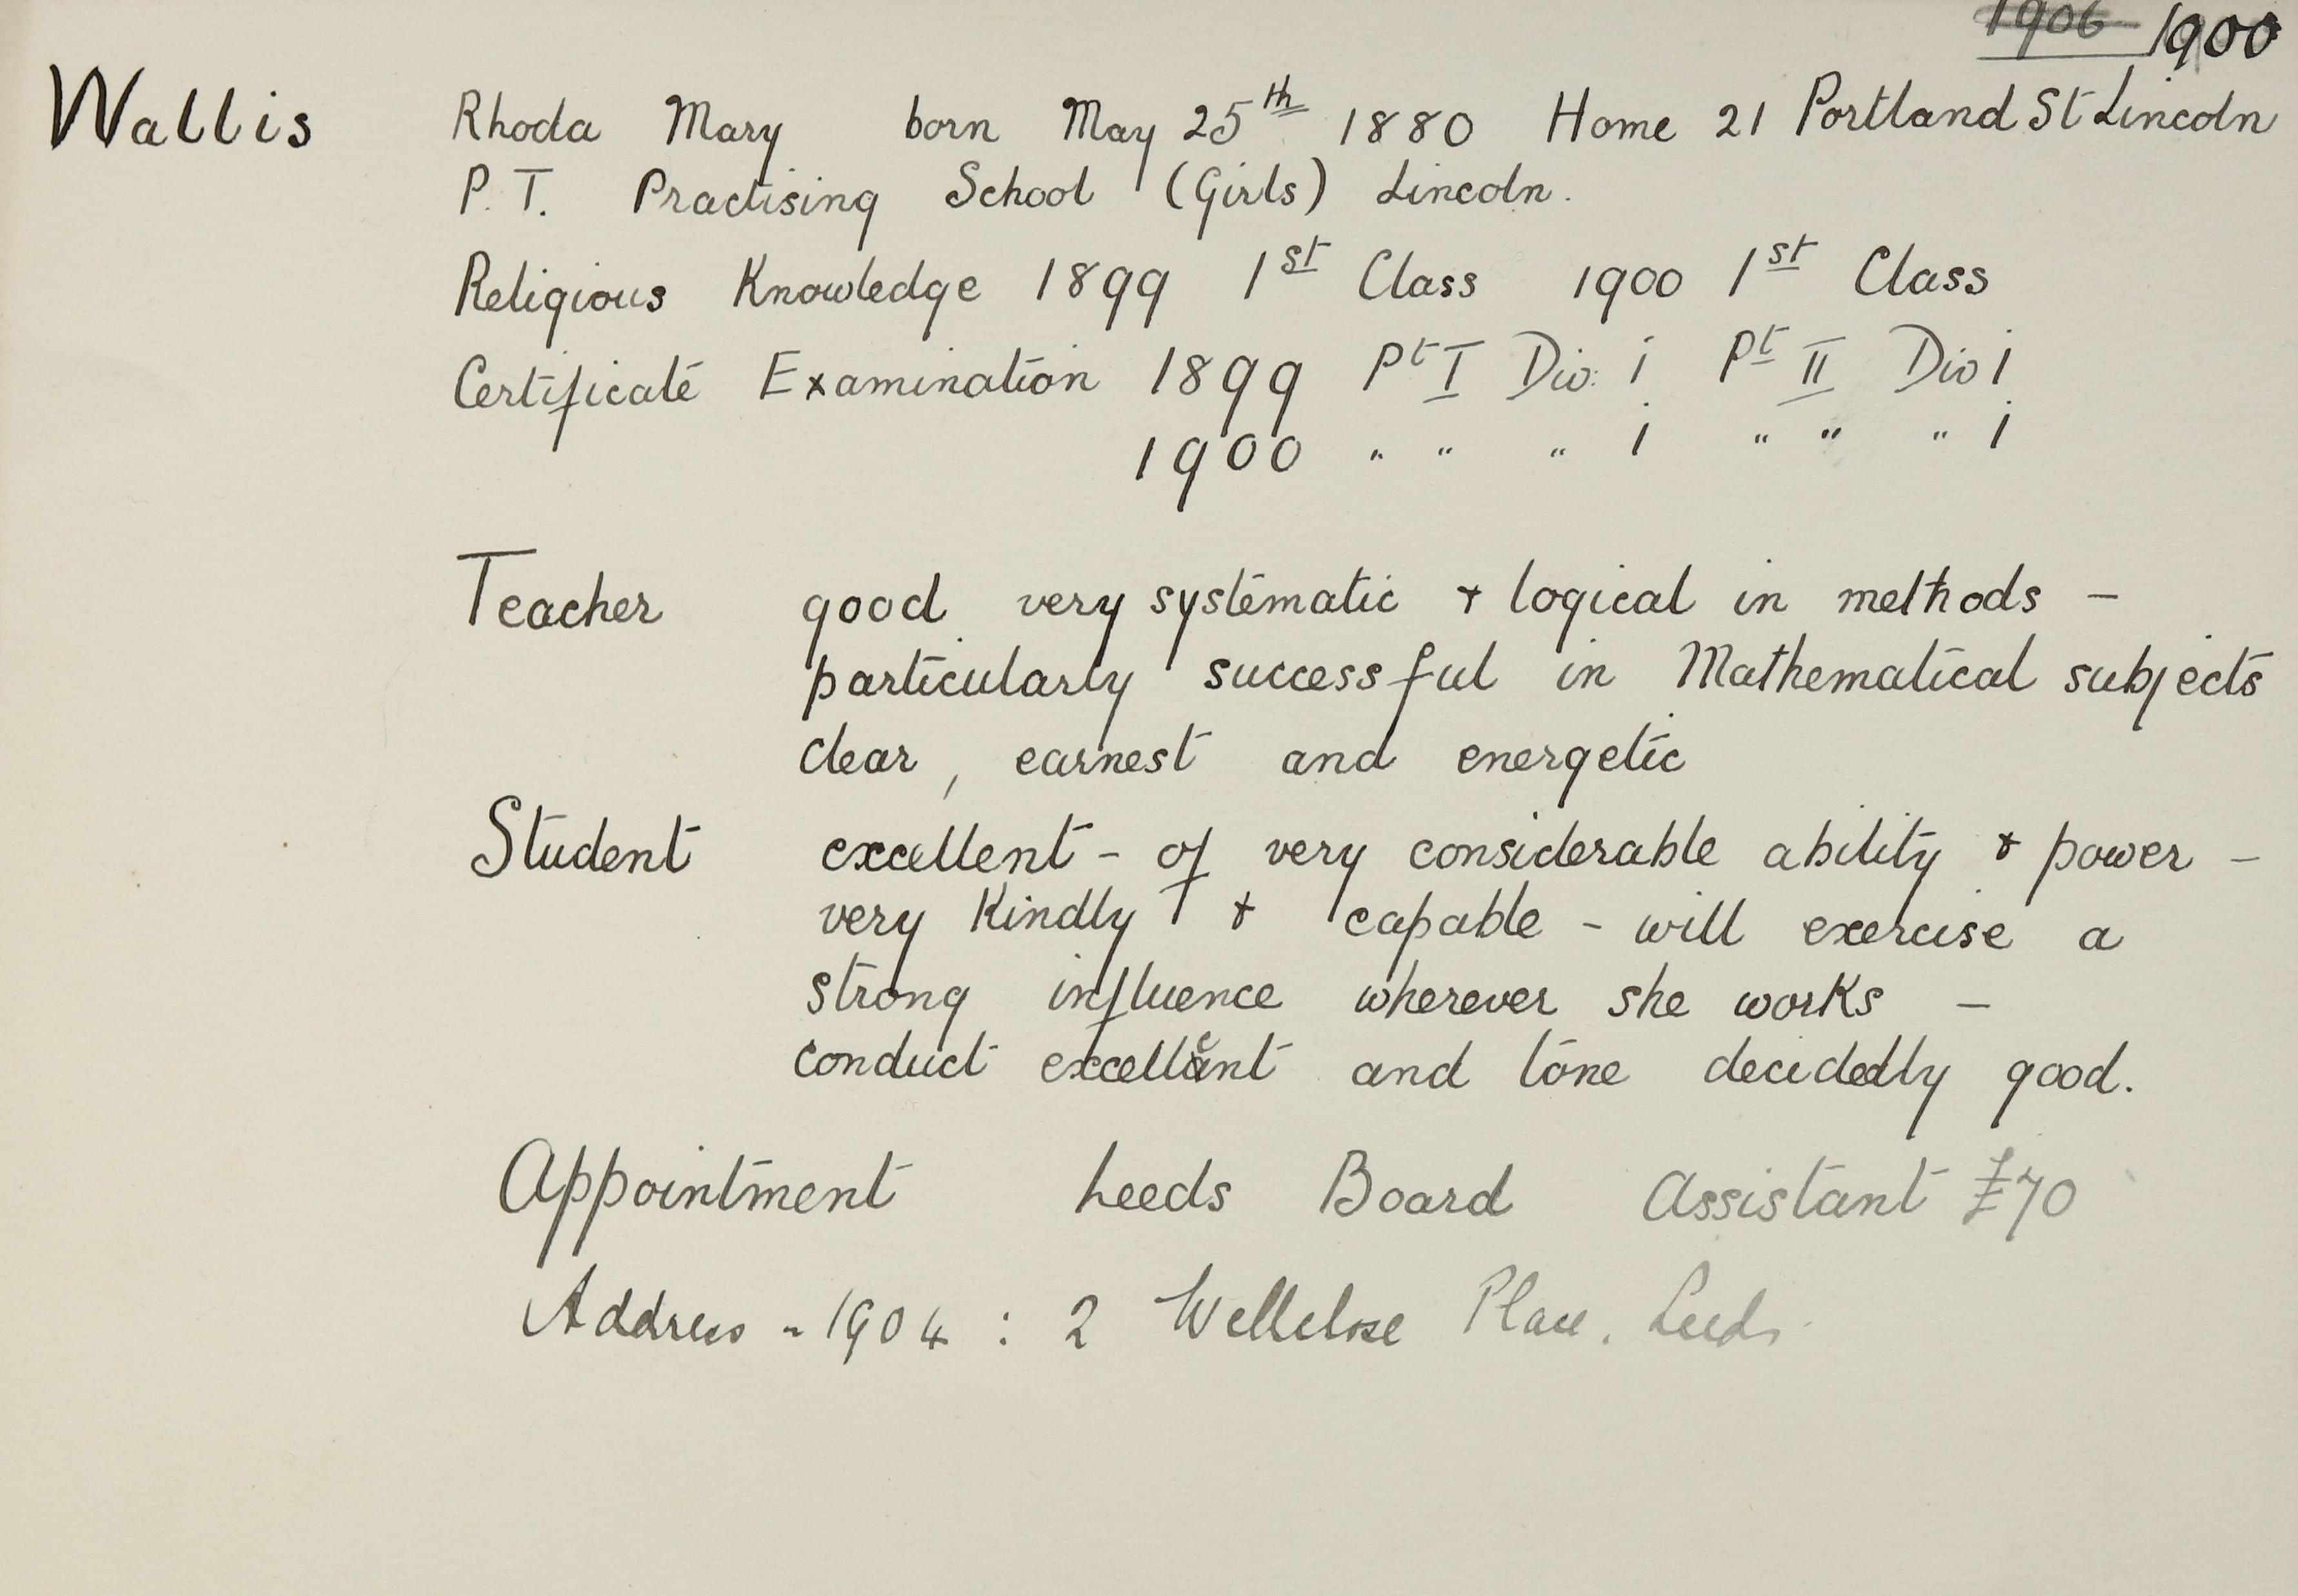 1906 1900
Wallis Rhoda Mary born May 25th 1880 Home 21 Portland St Lincoln
P.T. Practising School (Girls) Lincoln.
Religious Knowledge 1899 1st Class 1900 1st Class
Certificate Examination 1899 Pt I Div: i Pt II Div i
1900 " " " i " " " i
Teacher good very systematic & logical in methods -
particularly successful in Mathematical subjects
clear, earnest and energetic
Student excellent - of very considerable ability & power -
very kindly & capable - will exercise a
strong influence wherever she works -
conduct excellent and tone decidedly good.
Appointment Leeds Board Assistant £70
Address - 1904 : 2 Wellclose Place. Leeds.